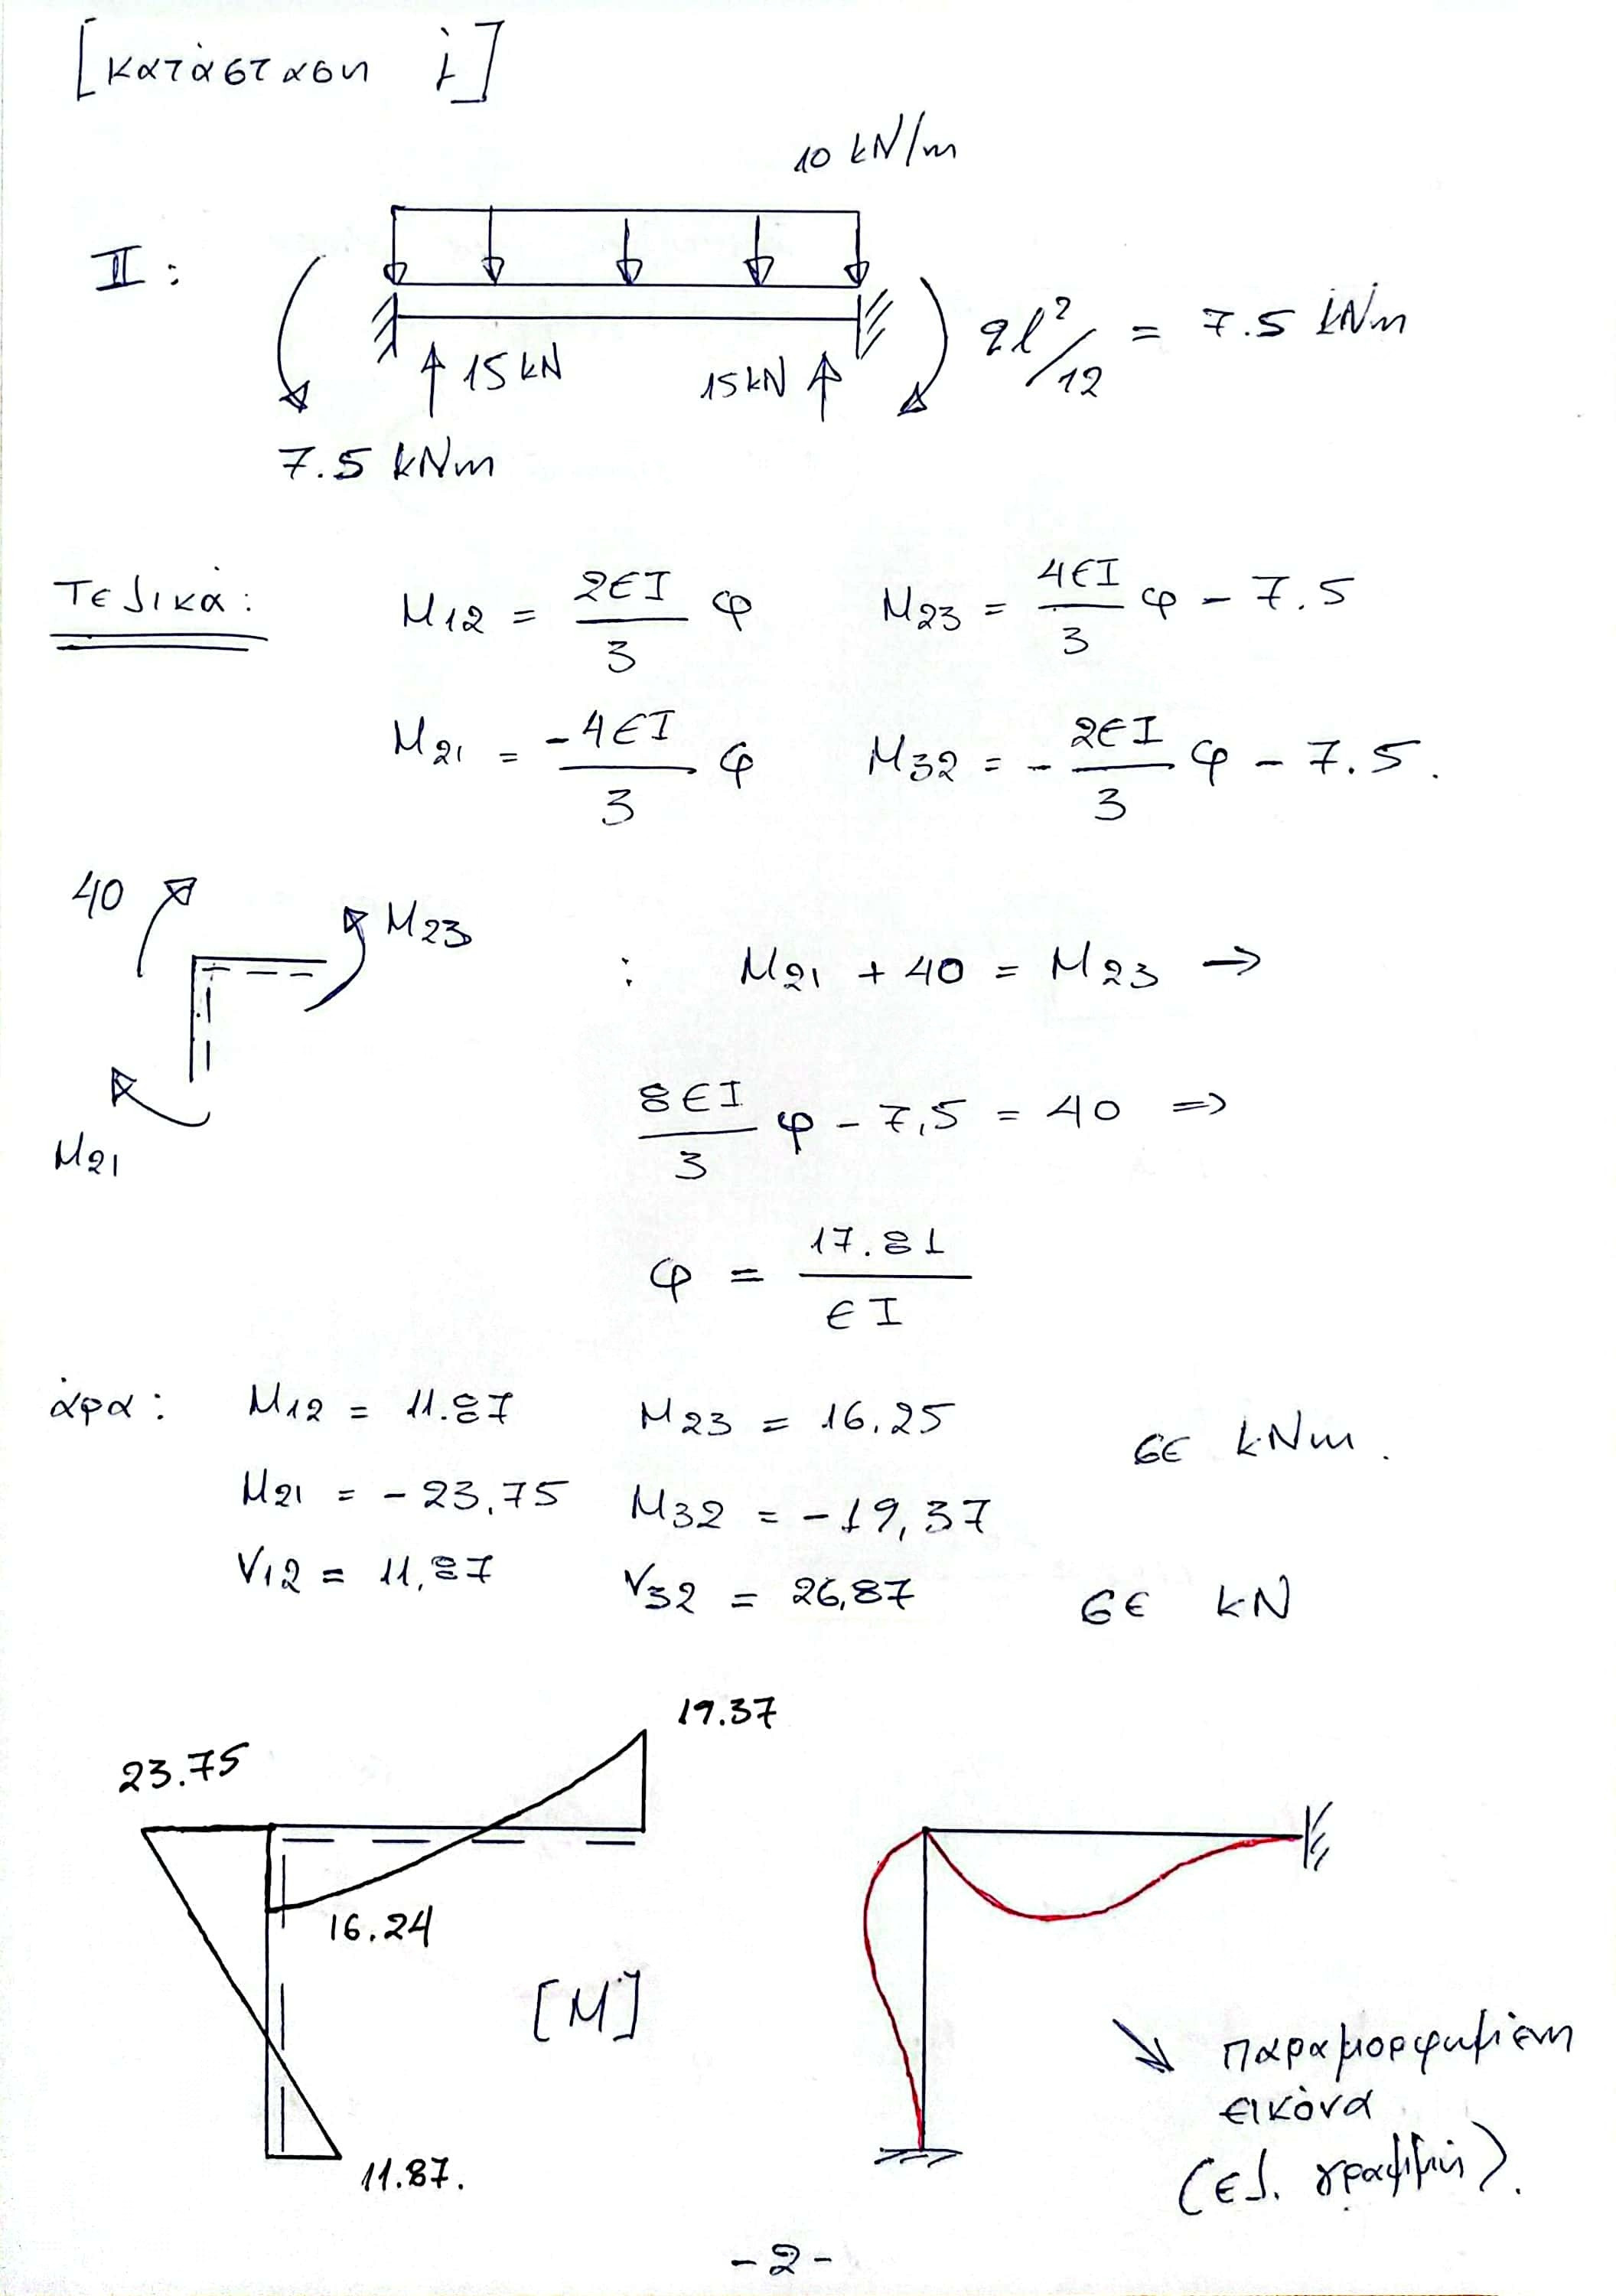 [κατάσταση i]
10 kN/m
II :
15 kN
15 kN
ql²/12 = 7.5 kNm
7.5 kNm
Τελικά: M12 = 2EI/3 φ M23 = 4EI/3 φ - 7.5
M21 = -4EI/3 φ M32 = - 2EI/3 φ - 7.5.
40
M23
: M21 + 40 = M23 →
M21
8EI/3 φ - 7,5 = 40 ⇒
φ = 17.81/EI
άρα: M12 = 11.87 M23 = 16.25 σε kNm.
M21 = - 23,75 M32 = - 19,37
V12 = 11,87 V32 = 26,87 σε kN
19.37
23.75
16.24
[M]
παραμορφωμένη
εικόνα
(ελ. γραμμή).
11.87.
- 2 -